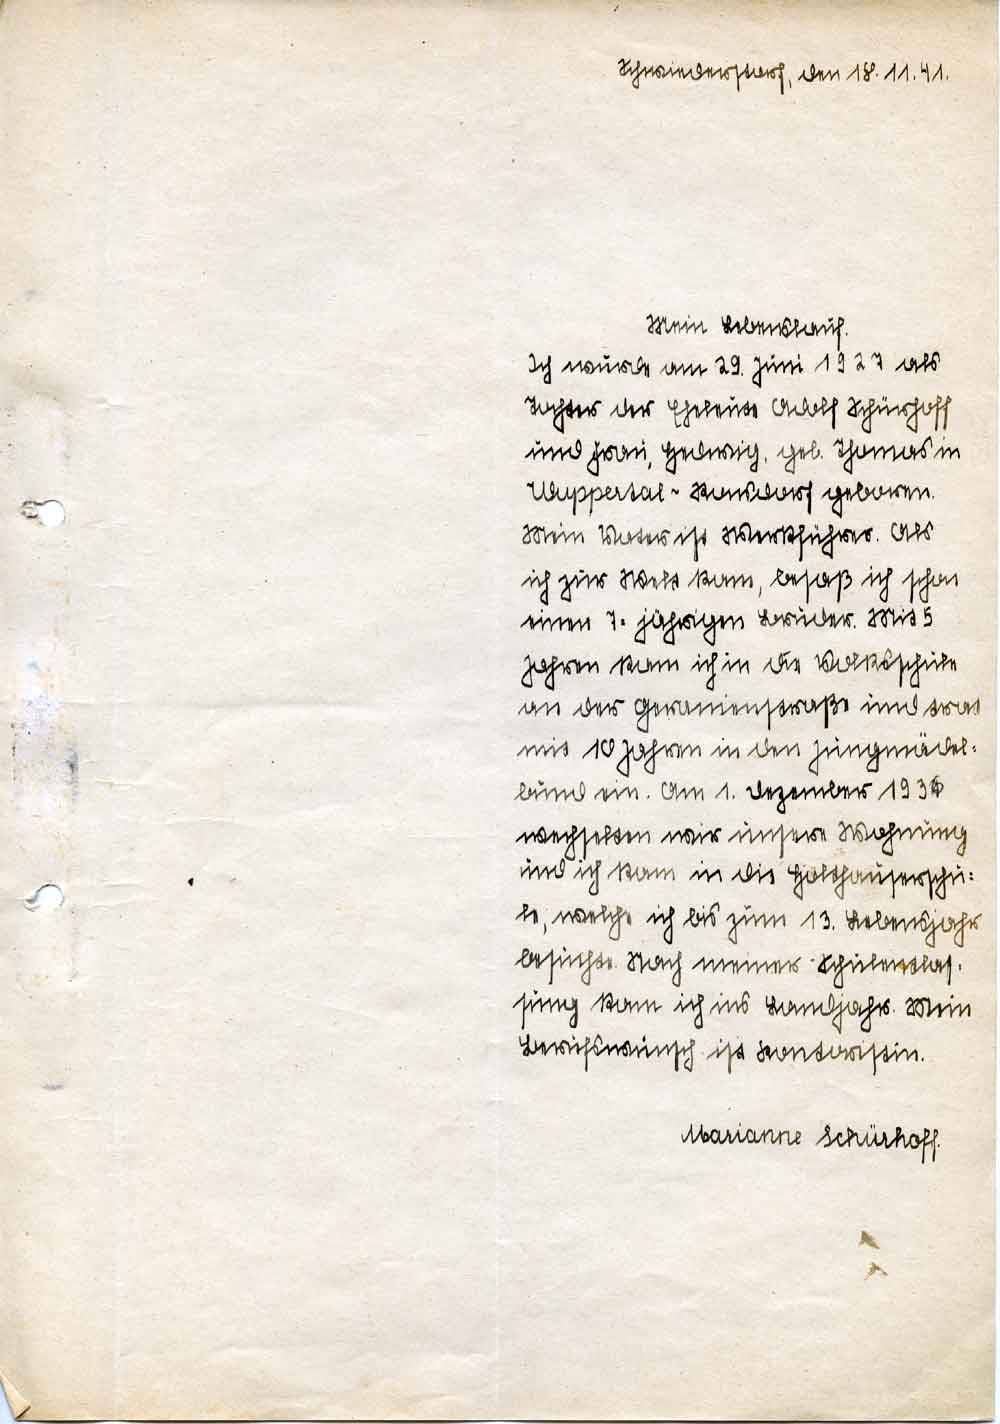 Schwiederstorf, den 18.11.41.
Mein Lebenslauf.
Ich wurde am 29. Juni 1927 als
Tochter der Eheleute Adolf Schürhoff
und Frau, Hedwig, geb. Thomas in
Wuppertal-Ronsdorf geboren.
Mein Vater ist Werkführer. Als
ich zur Welt kam, besaß ich schon
einen 7-jährigen Bruder. Mit 5
Jahren kam ich in die Volksschule
an der Geranienstraße und trat
mit 10 Jahren in den Jungmädel-
bund ein. Am 1. Dezember 1936
wechselten wir unsere Wohnung
und ich kam in die Holthauserschu-
le, welche ich bis zum 13. Lebensjahr
besuchte. Nach meiner Schulentlas-
sung kam ich ins Landjahr. Mein
Berufswunsch ist Kontoristin.
Marianne Schürhoff.